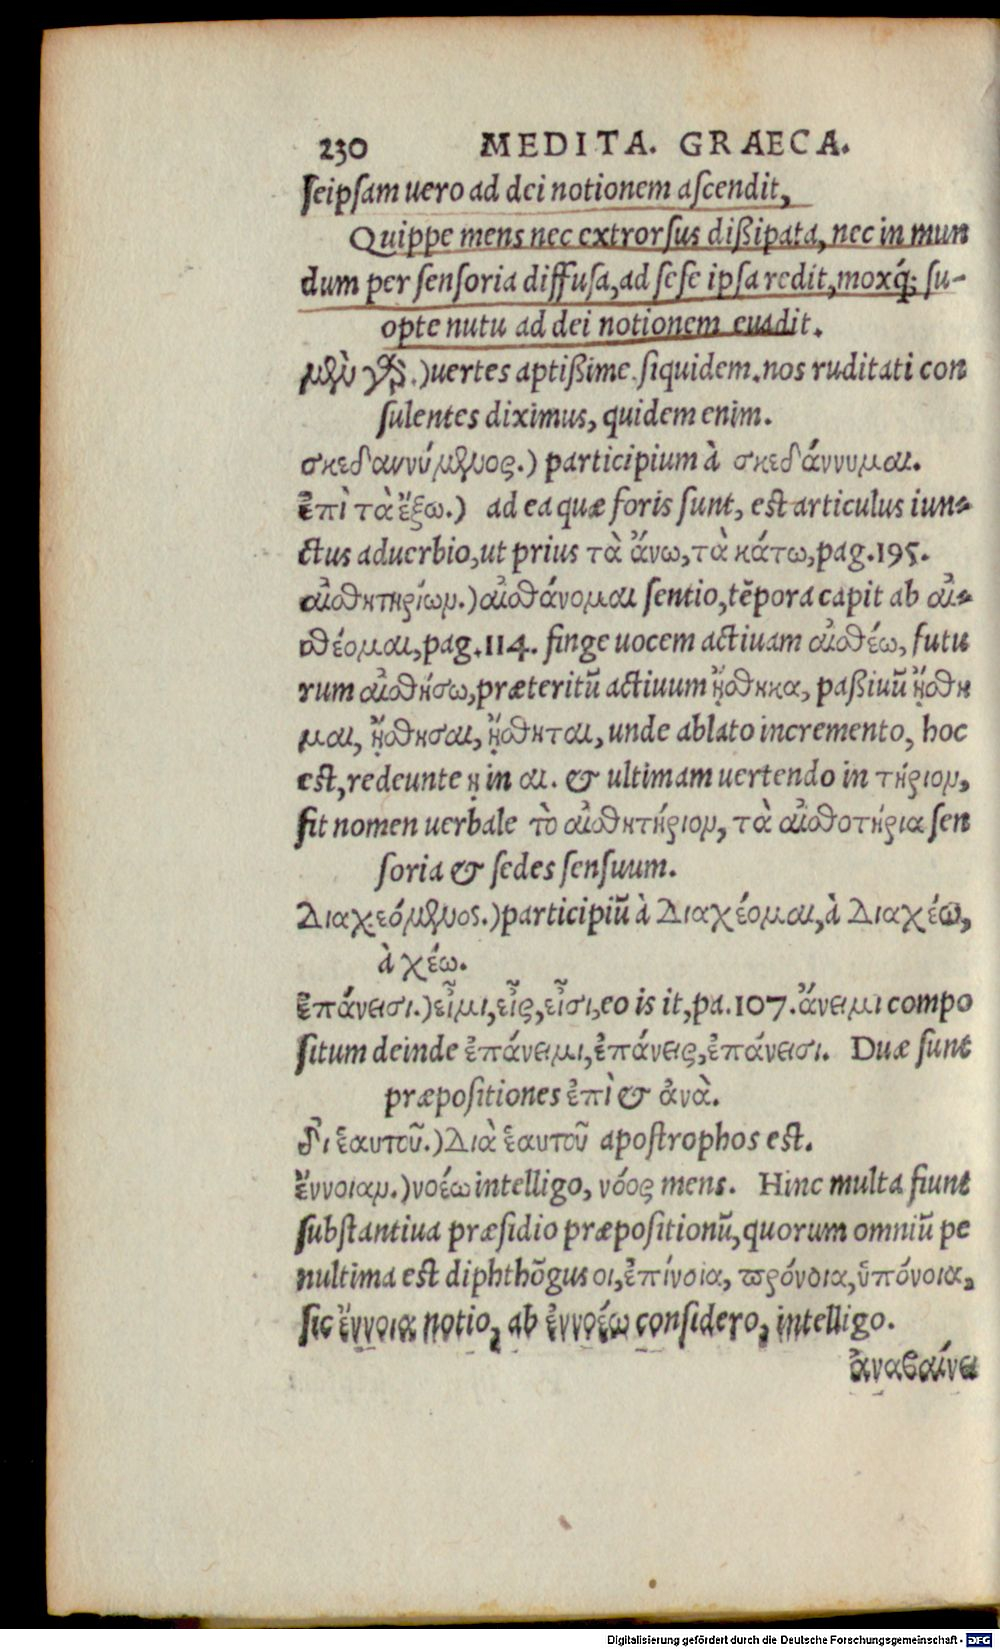 230 MEDITA. GRAECA.
ſeipſam uero ad dei notionem aſcendit,
Quippe mens nec extrorſus dißipata, nec in mun
dum per ſenſoria diffuſa, ad ſeſe ipſa redit, moxq́; ſu-
opte nutu ad dei notionem euadit.
μὲν γὰρ.) uertes aptißime. ſiquidem. nos ruditati con
ſulentes diximus, quidem enim.
σκεδαννύμενος.) participium à σκεδάννυμαι.
ἐπὶ τὰ ἔξω.) ad ea quæ foris ſunt, est articulus iun-
ctus aduerbio, ut prius τὰ ἄνω, τὰ κάτω, pag. 195.
αἰσθητηρίων.) αἰσθάνομαι ſentio, tẽpora capit ab αἰ-
σθέομαι, pag. 114. finge uocem actiuam αἰσθέω, futu
rum αἰσθήσω, præteritũ actiuum ᾔσθηκα, paßiuũ ᾔσθη
μαι, ᾔσθησαι, ᾔσθηται, unde ablato incremento, hoc
est, redeunte ῃ in αι. & ultimam uertendo in τήριον,
fit nomen uerbale τὸ αἰσθητήριον, τὰ αἰσθοτήρια ſen
ſoria & ſedes ſenſuum.
Διαχεόμενος.) participiũ à Διαχέομαι, à Διαχέω,
à χέω.
ἐπάνεισι.) εἶμι, εἶς, εἶσι, eo is it, pa. 107. ἄνειμι compo
ſitum deinde ἐπάνειμι, ἐπάνεις, ἐπάνεισι. Duæ ſunt
præpoſitiones ἐπὶ & ἀνὰ.
δι ἑαυτοῦ.) Διὰ ἑαυτοῦ apoſtrophos est.
ἔννοιαν.) νοέω intelligo, νόος mens. Hinc multa fiunt
ſubſtantiua præſidio præpoſitionũ, quorum omniũ pe
nultima est diphthõgus οι, ἐπίνοια, πρόνοια, ὑπόνοια,
ſic ἔννοια notio, ab ἐννοέω conſidero, intelligo.
ἀναβαίνει
Digitalisierung gefördert durch die Deutsche Forschungsgemeinschaft - DFG